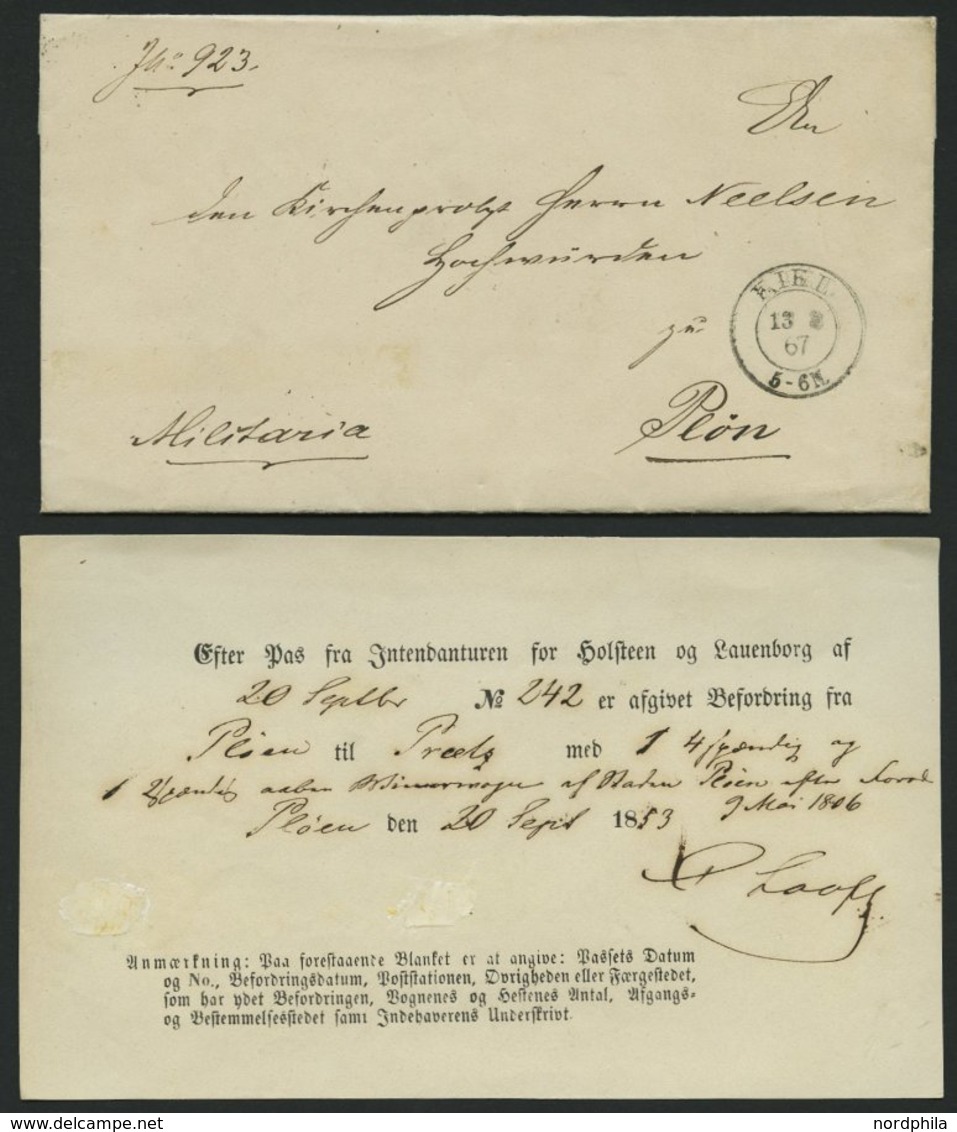 JNo 923.
An
den Kirchenprobst Herrn Neelsen
Hochwürden
zu
Plön
Militaria
KIEL
13 2
67
5-6N.
Efter Pas fra Intendanturen for Holsteen og Lauenborg af
20 Septbr № 242 er afgivet Befordring fra
Pløen til Preetz med 1 4spændig og
1 2spændig aaben af Staden Pløen efter
9 Mai 1806
Pløen den 20 Sept 1853
Anmærkning: Paa forestaaende Blanket er at angive: Passets Datum
og No., Befordringsdatum, Poststationen, Øvrigheden eller Færgestedet,
som har ydet Befordringen, Vognenes og Hestenes Antal, Afgangs-
og Bestemmelsesstedet samt Indehaverens Underskrivt.
nordphila
delcampe.net